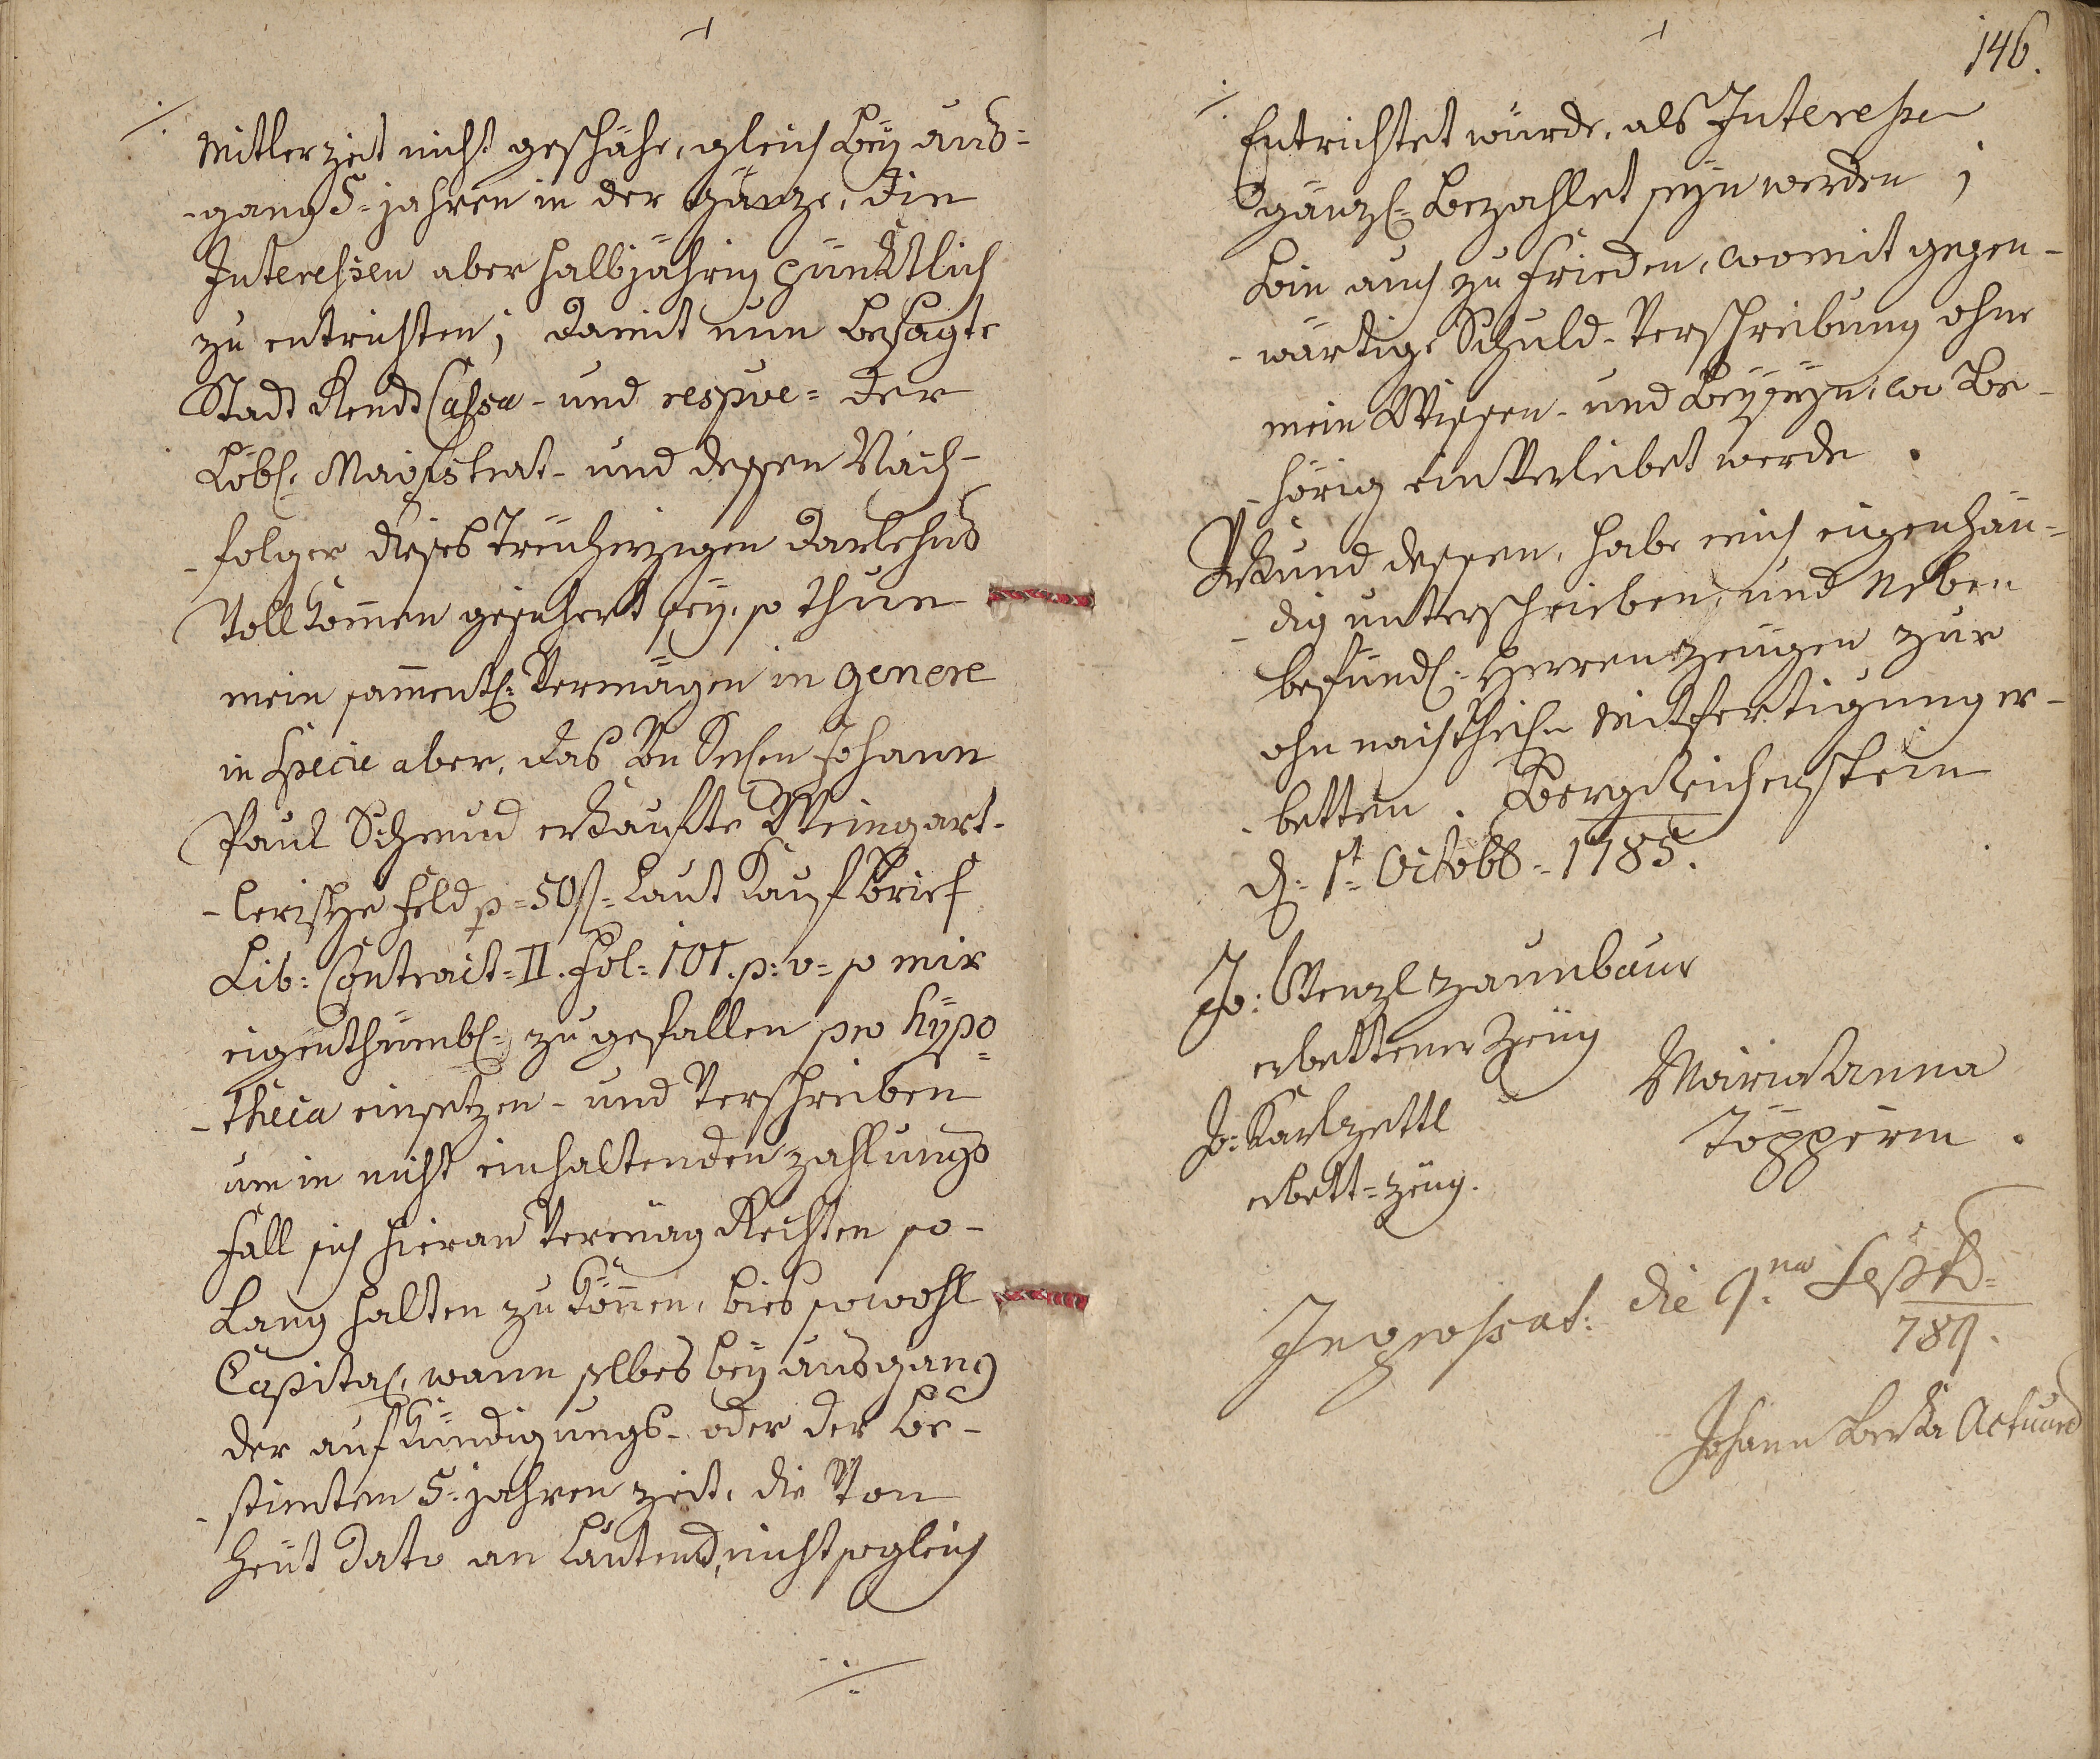 Mitlerzeit nicht geschähe, gleich bey aus=
-gang 5= jahren in der gänze, die
Interessen aber halbjährig pünktlich
zu entrichten; damit nun besagte
Stadt Rendt Cassa - und respve= der
Löbl: Magistrat - und dessen Nach-
-folger dieses treüherzigen darlehns
Vollkom̅en gesichert sey, so thue
mein sam̅entl: Vermögen in genere
in Specie aber, das
Paul Schmid erkaufte Weingart-
-lerische feld p= 50f= laut Kaufbrief
Lib: Contract= II. Fol= 101. p: v= so mir
eigenthümbl= zugefallen pro hypo=
-theca einsetzen - und Verschreiben
um in nicht einhaltenden zahlungs
fall sich hieran Vermög Rechten so-
lang halten zu kön̅en, bies sowohl
Capital, wann selbes bey ausgang
der aufkündigungs - oder der be-
-stimten 5= jahren zeit, die Von
heüt dato an lautend, nicht sogleich
./.
146.
./.
Entrichtet würde, als Interesse
gänzl= bezahlet seyn werden ;
bin auch zu frieden, womit gegen-
-wärtige Schuld-Verschreibung ohne
mein Wissen - und beyseyn, wo be-
-hörig einverleibet werde .
Urkund dessen, habe mich eigenhän=
-dig unterschrieben, und neben
befündl: Herren Zeügen zur
ohnnachtheil: Mitfertigung er-
-betten. Bergreichenstein
d: 1t= Octobb= 1785.
Jo: Wenzl Zaunbaur
erbettener Zeüg
Jo: Karl Zettl
erbett= Zeüg.
Maria Anna
Töpperin .
Ingrossat: die 9.na Sept=
789.
Johann Actuar